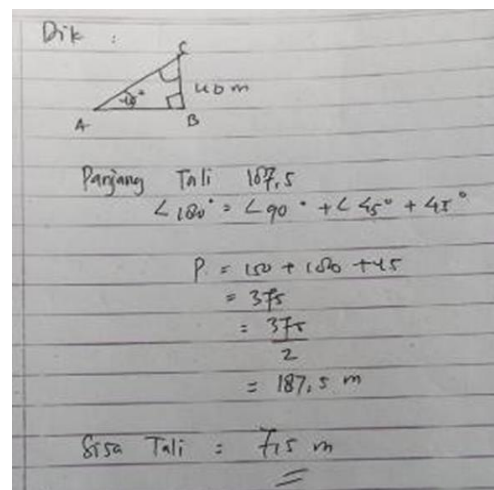 Dik :
C
40 m
A
B
Panjang Tali 187,5
∠180° = ∠90° + ∠45° + 45°
P = 150 + 180 + 45
= 375
= 375
2
= 187,5 m
Sisa Tali = 7,5 m